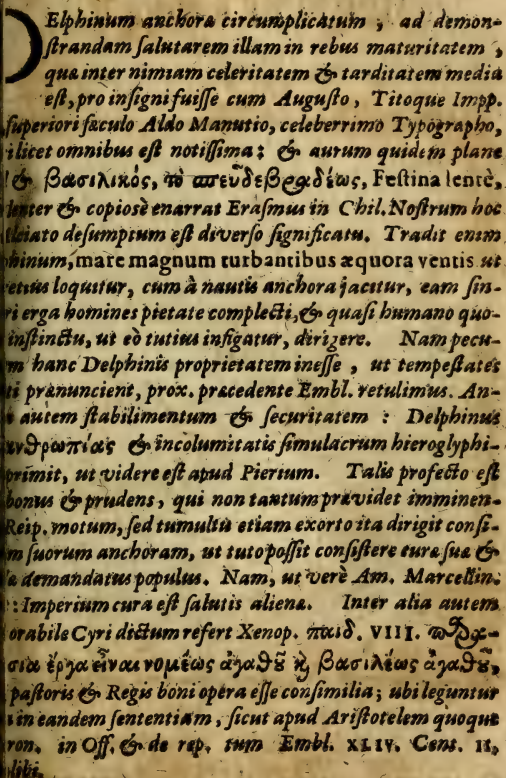 DElphinum anchoræ circumplicatum, ad demon-
strandam salutarem illam in rebus maturitatem,
quæ inter nimiam celeritatem & tarditatem media
est, pro insigni fuisse cum Augusto, Titoque Impp.
superiori sæculo Aldo Manutio, celeberrimo Typographo,
ilicet omnibus est notissima: & aurum quidem plane
& βασιλικὸς, τὸ σπεῦδε βραδέως, Festina lentè,
& copiosè enarrat Erasmus in Chil. Nostrum hoc
desumptum est diverso significatu. Tradit enim
hinum, mare magnum turbantibus æquora ventis ut
loquitur, cum à nautis anchora jacitur, eam sin-
ri erga homines pietate complecti, & quasi humano quo-
instinctu, ut eò tutius infigatur, dirigere. Nam pecu-
m hanc Delphinis proprietatem inesse, ut tempestates
ti prænuncient, prox. præcedente Embl. retulimus. An-
autem stabilimentum & securitatem: Delphinus
νθρωπίας & incolumitatis simulacrum hieroglyphi-
primit, ut videre est apud Pierium. Talis profecto est
bonus & prudens, qui non tantum prævidet imminen-
Reip. motum, sed tumultu etiam exorto ita dirigit consi-
m suorum anchoram, ut tuto possit consistere cura sua &
demandatus populus. Nam, ut verè Am. Marcellin.
: Imperium cura est salutis alienæ. Inter alia autem
orabile Cyri dictum refert Xenop. παιδ. VIII.
σια ἔργα εἶναι νομέως ἀγαθοῦ καὶ βασιλέως ἀγαθοῦ,
pastoris & Regis boni opera esse consimilia; ubi leguntur
in eandem sententiam, sicut apud Aristotelem quoque
ron. in Off. & de rep. tum Embl. XLIV. Cent. II,
libi.